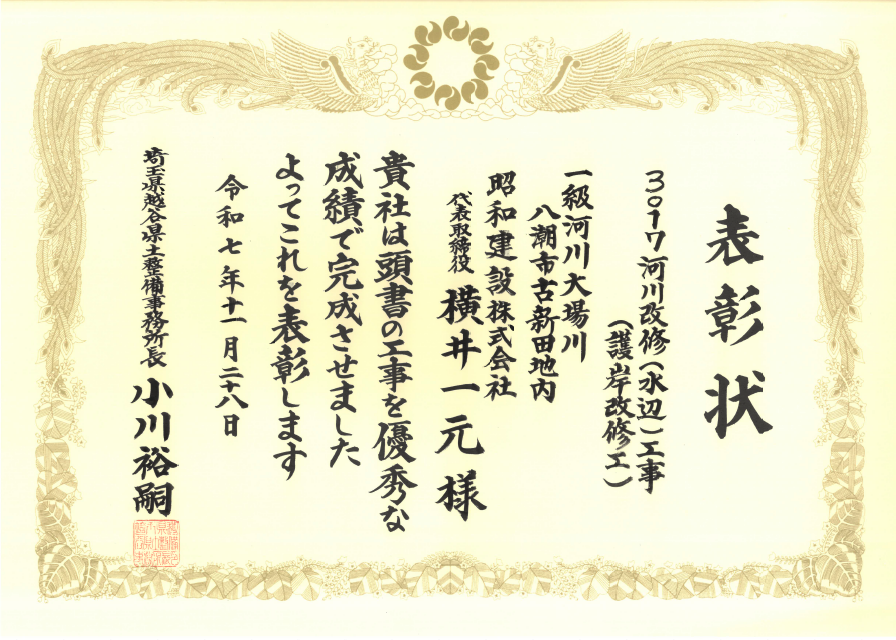 表彰状
3017河川改修(水辺)工事
(護岸改修工)
一級河川大場川
八潮市古新田地内
昭和建設株式会社
代表取締役 横井一元様
貴社は頭書の工事を優秀な
成績で完成させました
よってこれを表彰します
令和七年十一月二十八日
埼玉県越谷県土整備事務所長 小川裕嗣